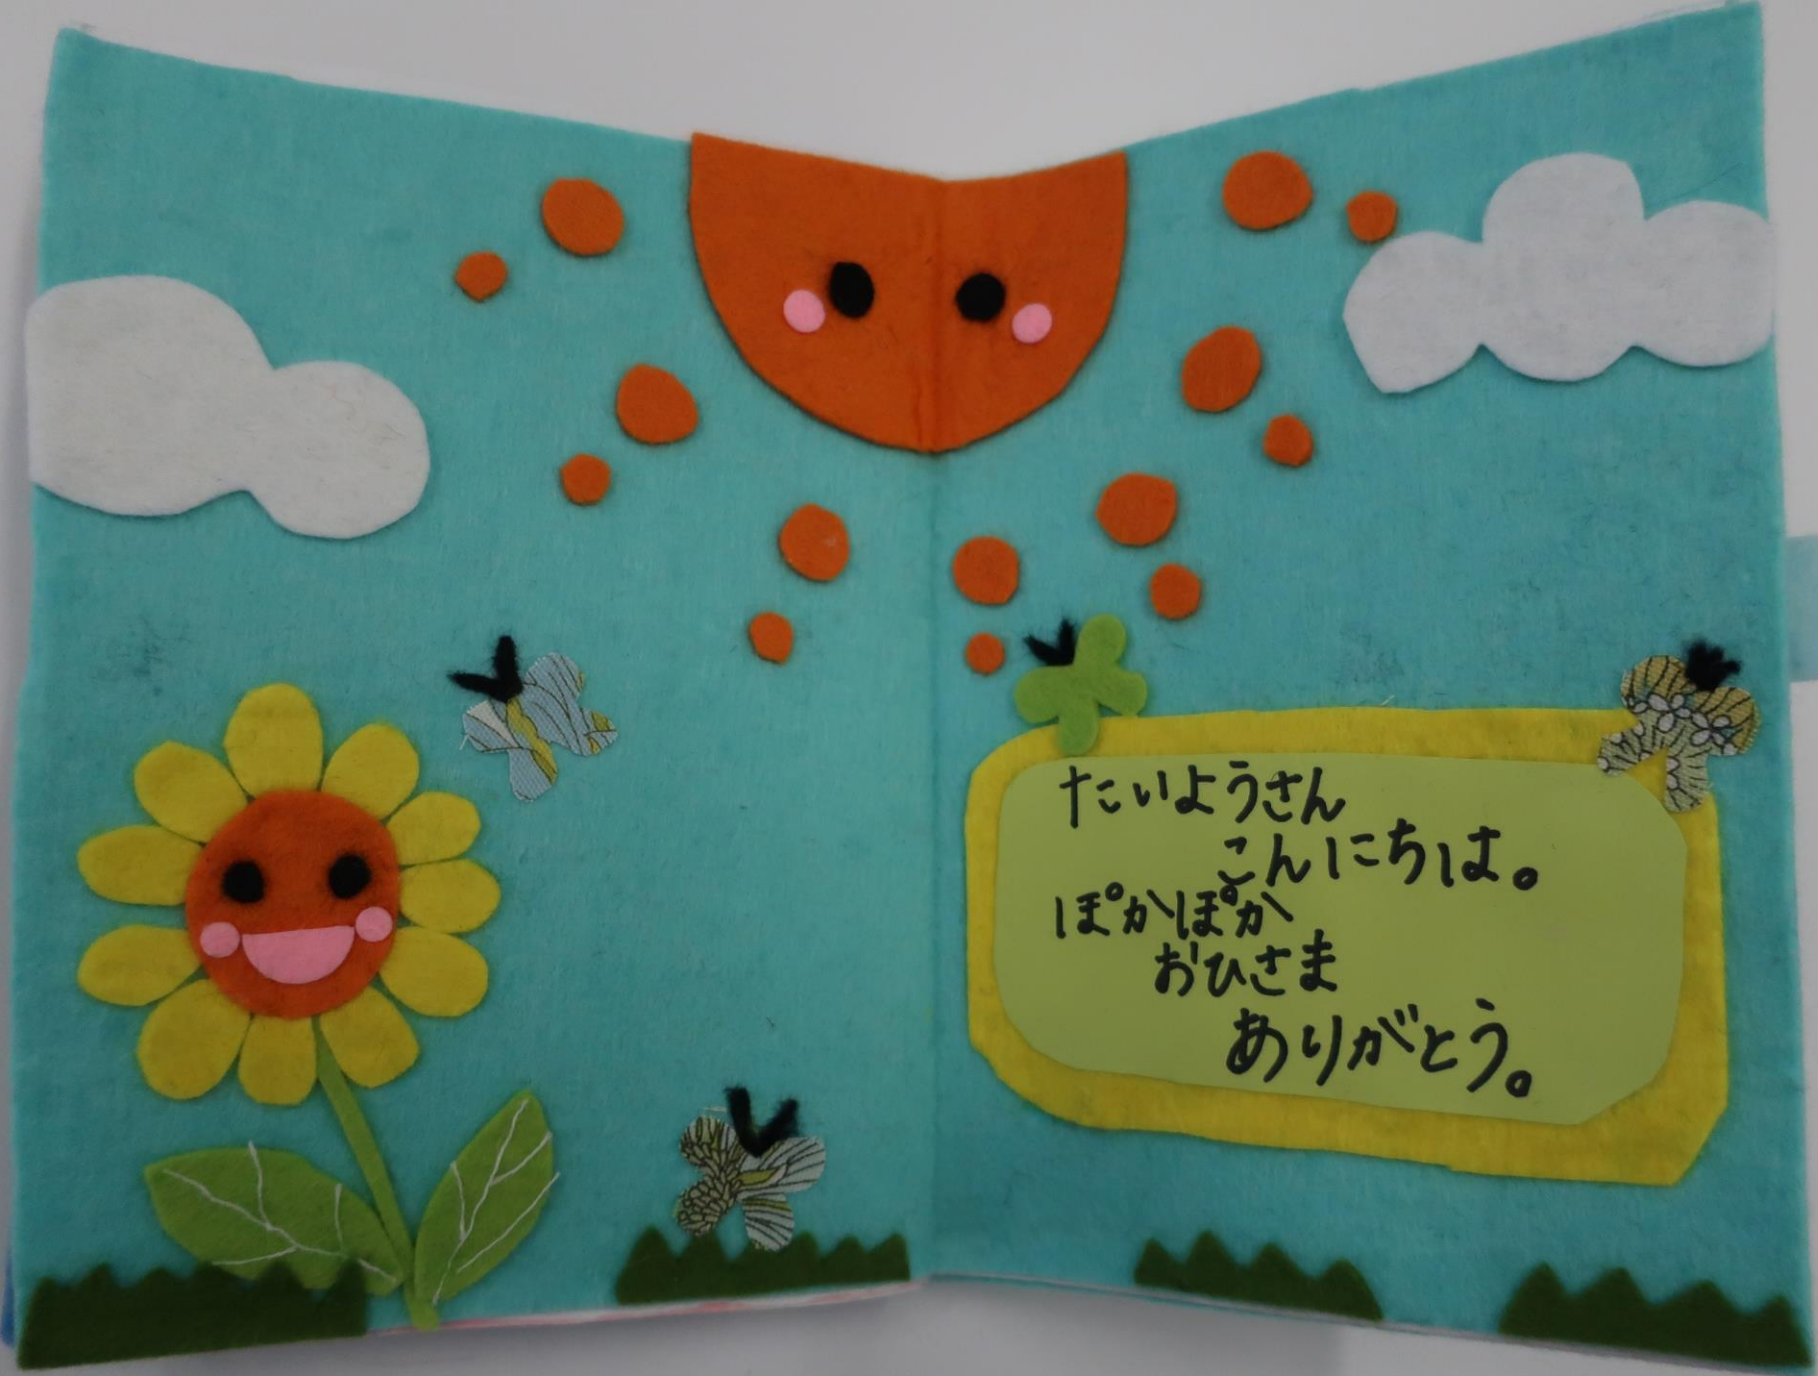 たいようさん
こんにちは。
ぽかぽか
おひさま
ありがとう。